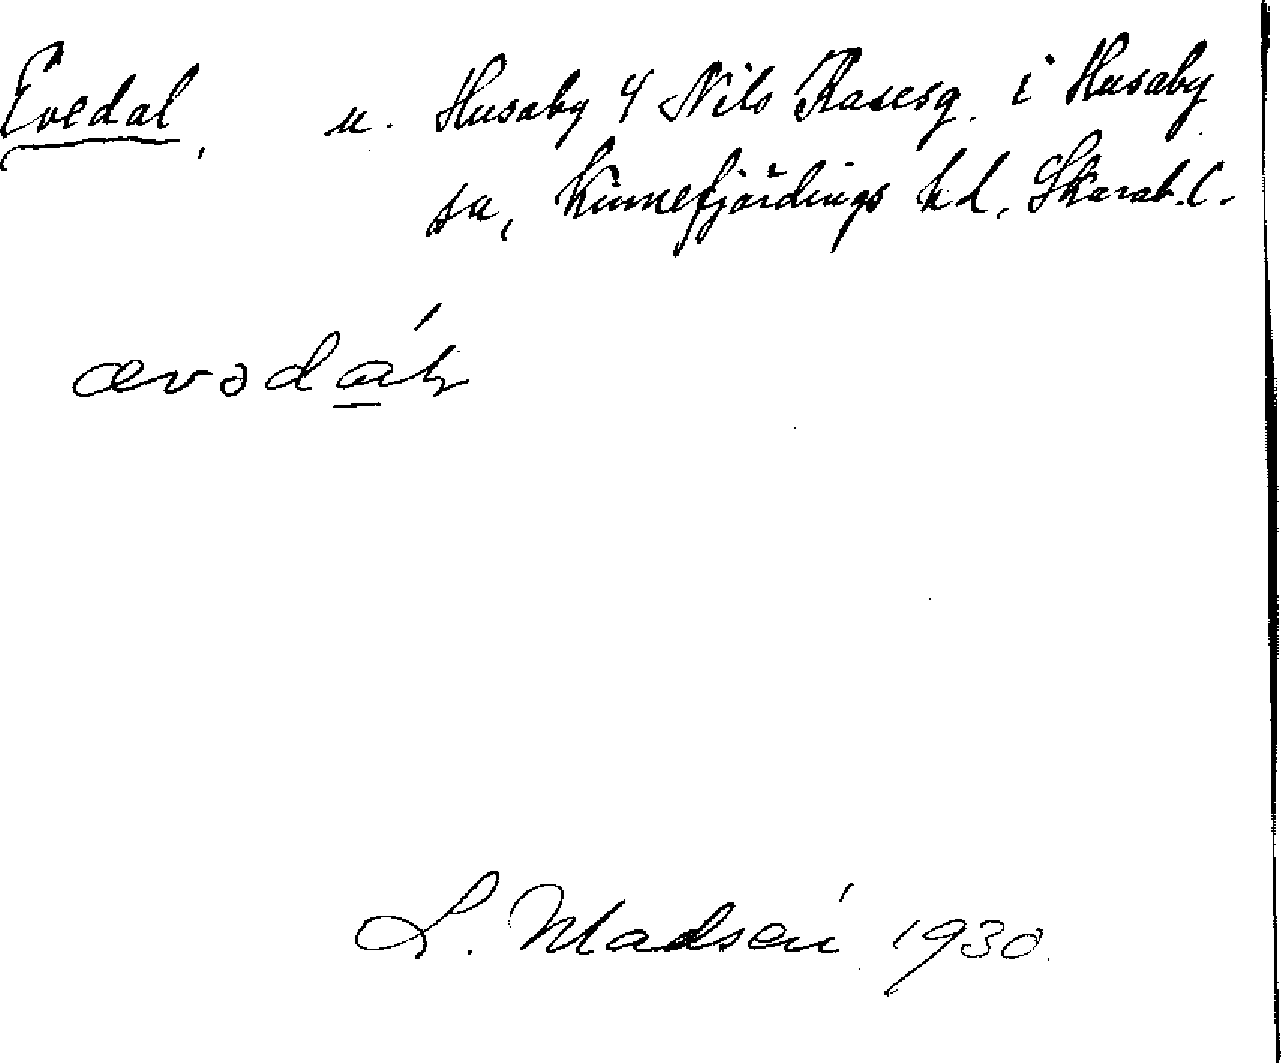 Evedal, u. Husaby 4 Nils Rasesg. i Husaby
sn, Kinnefjärdings hd, Skarab.l.
ævədáɫ
L. Madsén 1930